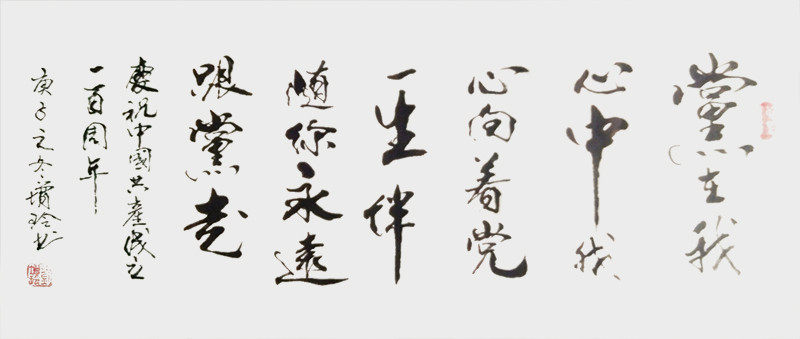 黨在我
心中我
心向着党
一生伴
隨你永遠
跟黨走
慶祝中國共產成立
一百周年
庚子之冬玲书